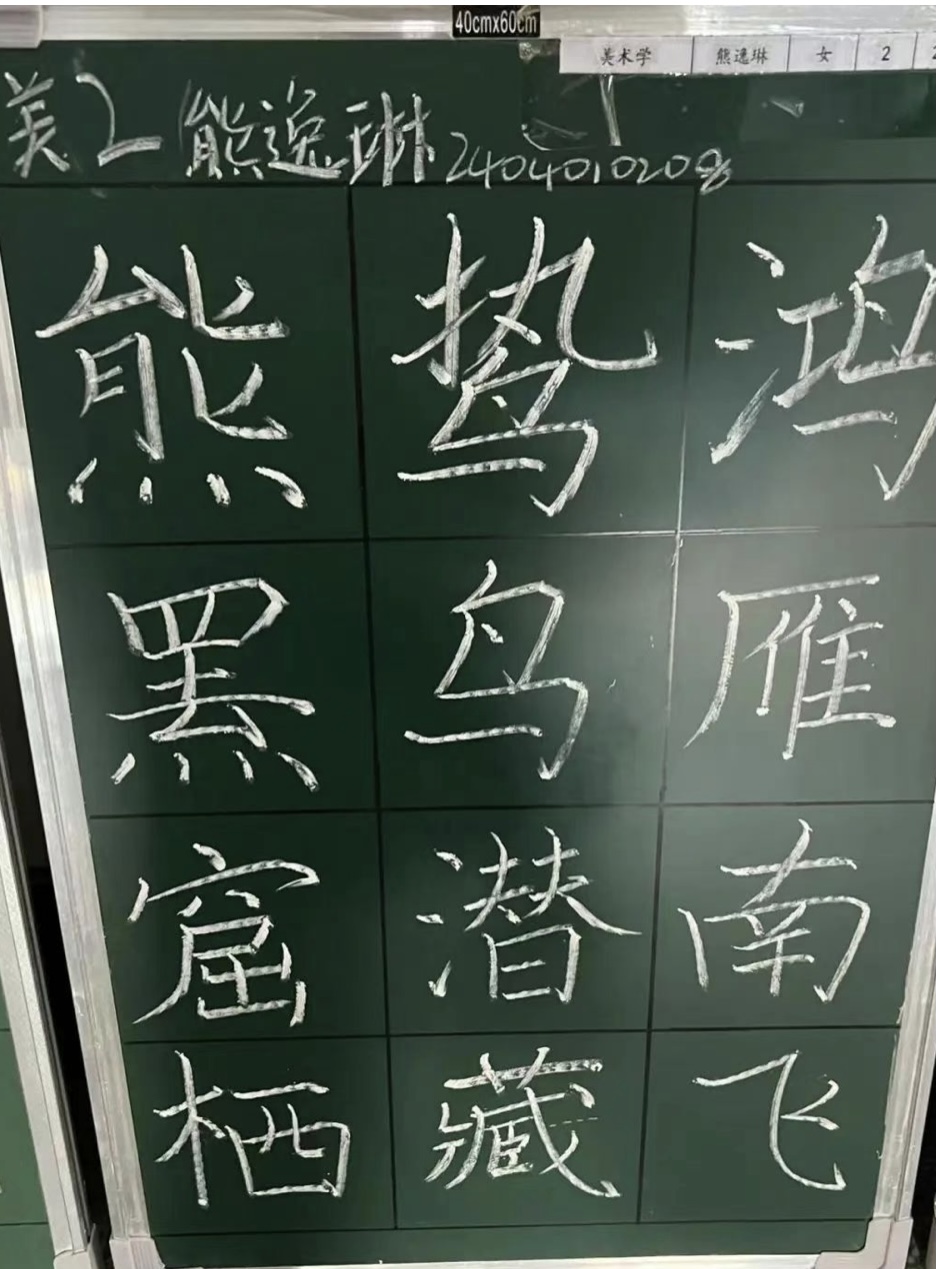 40cmx60cm
美术学 熊逸琳 女 2
美2 熊逸琳 2404010208
鸿雁南飞
鸷鸟潜藏
熊罴窟栖